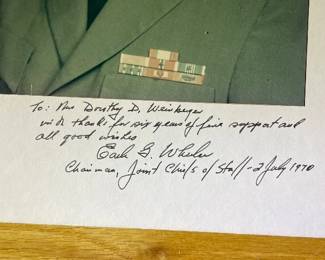 To: Mrs Dorothy D. Weinberger
with thanks for six years of fine support and
all good wishes
Earle G. Wheeler
Chairman, Joint Chiefs of Staff - 2 July 1970